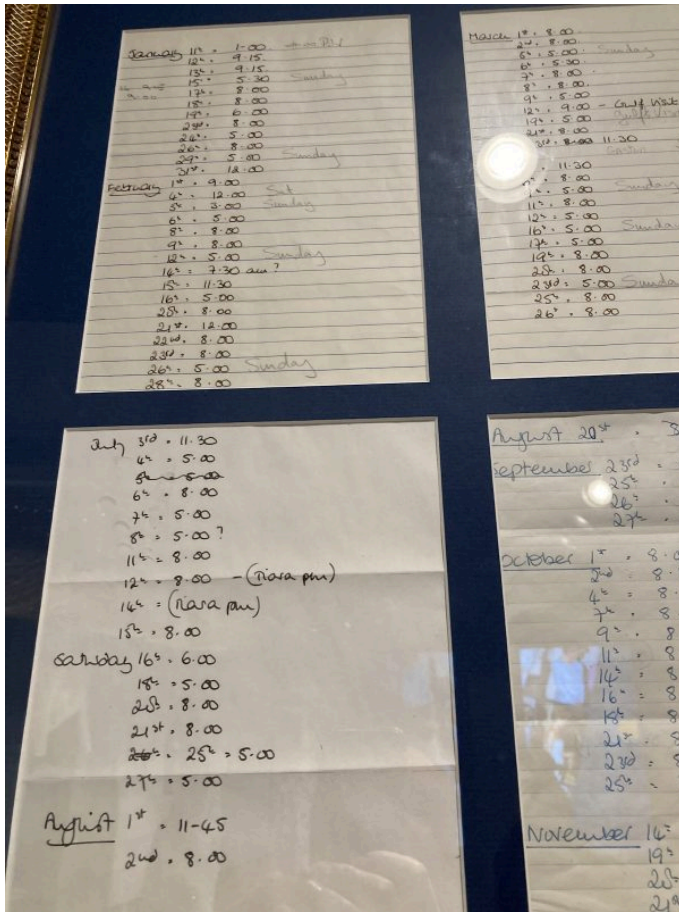 January 11th . 1-00
12th . 9.15
13th . 9.15
15th . 5.30 Sunday
17th . 8.00
18th . 8.00
19th . 6.00
23rd . 8.00
24th . 5.00
26th . 8.00
29th . 5.00 Sunday
31st . 12.00
February 1st . 9.00
4th . 12.00 Sat
5th . 3.00 Sunday
6th . 5.00
8th . 8.00
9th . 8.00
12th . 5.00 Sunday
14th = 7.30 am ?
15th = 11.30
16th . 5.00
20th . 8.00
21st . 12.00
22nd . 8.00
23rd . 8.00
26th . 5.00 Sunday
28th . 8.00
March 1st . 8.00
2nd . 8.00
5th . 5.00 Sunday
6th . 5.30
7th . 8.00
8th . 8.00
9th . 5.00
12th . 9.00 - Gulf Visit
19th . 5.00
21st . 8.00
31st . 8.00 11.30
11.30
8.00
5.00 Sunday
11th . 8.00
12th . 5.00
16th . 5.00 Sunday
17th . 5.00
19th . 8.00
20th . 8.00
23rd = 5.00 Sunday
25th . 8.00
26th . 8.00
July 3rd = 11.30
4th = 5.00
5th = 5.00
6th . 8.00
7th = 5.00
8th = 5.00 ?
11th = 8.00
12th = 8.00 - (Tiara pm)
14th = (Tiara pm)
15th = 8.00
Saturday 16th . 6.00
18th = 5.00
20th = 8.00
21st . 8.00
26th . 25th = 5.00
27th = 5.00
August 1st = 11-45
2nd . 8.00
August 20st .
September 23rd =
25th .
26th .
27th .
October 1st . 8.0
2nd . 8.
4th = 8.
7th . 8
9th . 8
11th = 8
14th = 8
16th = 8
18th = 8
21st . 8
23rd = 8
25th =
November 14th
19th
20th
21st